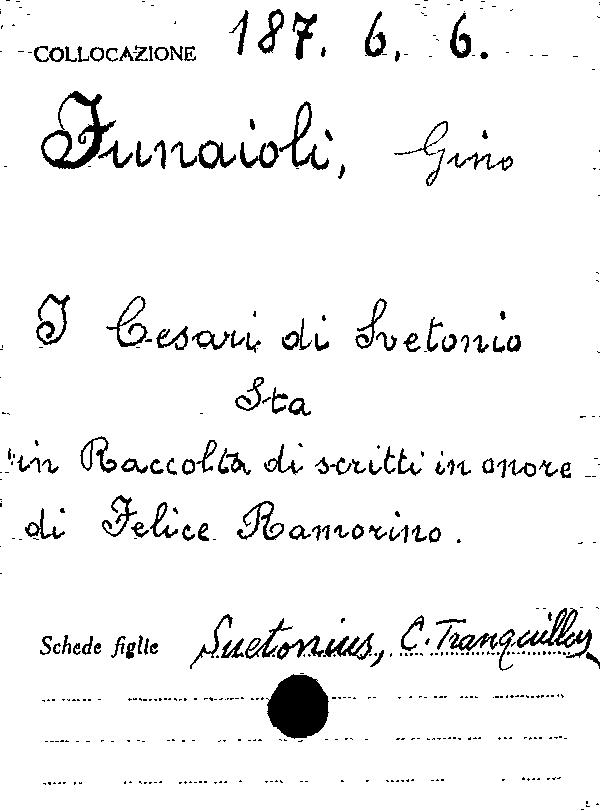 COLLOCAZIONE 187. 6. 6.
Funaioli, Gino
I Cesari di Svetonio
Sta
in Raccolta di scritti in onore
di Felice Ramorino.
Schede figlie Suetonius, C. Tranquillus